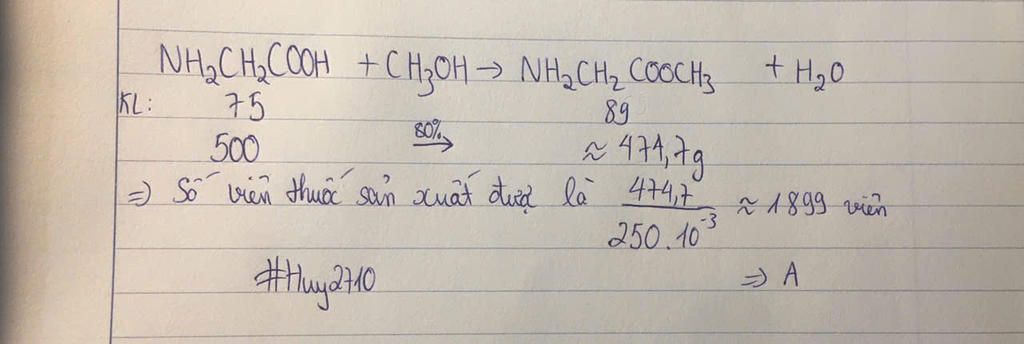 NH₂CH₂COOH + CH₃OH → NH₂CH₂COOCH₃ + H₂O
KL: 75 89
500 80% → ≈ 474,7g
⇒ Số viên thuốc sản xuất được là 474,7 / 250.10⁻³ ≈ 1899 viên
#Huy2710 ⇒ A